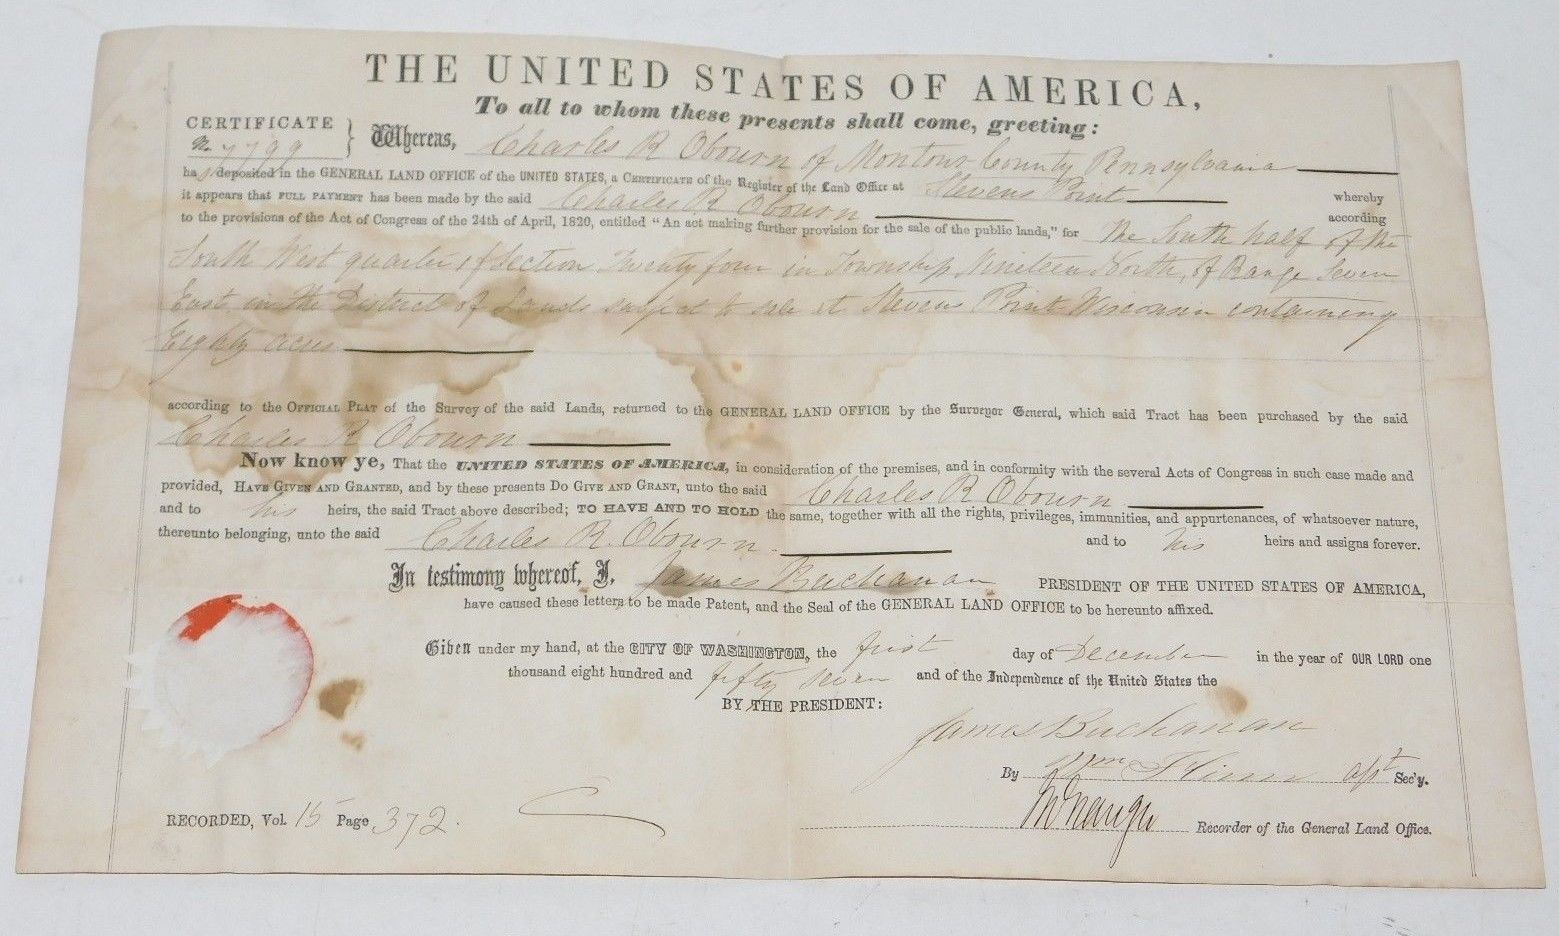 THE UNITED STATES OF AMERICA,
To all to whom these presents shall come, greeting:
CERTIFICATE
No. 7799 } Whereas, Charles R Obourn of Montour County Pennsylvania
has deposited in the GENERAL LAND OFFICE of the UNITED STATES, a CERTIFICATE of the Register of the Land Office at Stevens Point whereby
it appears that FULL PAYMENT has been made by the said Charles R Obourn according
to the provisions of the Act of Congress of the 24th of April, 1820, entitled "An act making further provision for the sale of the public lands," for The South half of the
South West quarter of Section Twenty four in Township Nineteen North, of Range Seven
East in the District of Lands subject to sale at Stevens Point Wisconsin containing
Eighty acres
according to the OFFICIAL PLAT of the Survey of the said Lands, returned to the GENERAL LAND OFFICE by the Surveyor General, which said Tract has been purchased by the said
Charles R Obourn
NOW KNOW YE, That the UNITED STATES OF AMERICA, in consideration of the premises, and in conformity with the several Acts of Congress in such case made and
provided, HAVE GIVEN AND GRANTED, and by these presents DO GIVE AND GRANT, unto the said Charles R Obourn
and to his heirs, the said Tract above described; TO HAVE AND TO HOLD the same, together with all the rights, privileges, immunities, and appurtenances, of whatsoever nature,
thereunto belonging, unto the said Charles R. Obourn and to his heirs and assigns forever.
In testimony whereof, I, James Buchanan PRESIDENT OF THE UNITED STATES OF AMERICA,
have caused these letters to be made Patent, and the Seal of the GENERAL LAND OFFICE to be hereunto affixed.
Given under my hand, at the CITY OF WASHINGTON, the first day of December in the year of OUR LORD one
thousand eight hundred and fifty seven and of the Independence of the United States the
BY THE PRESIDENT:
James Buchanan
By Wm Sec'y.
RECORDED, Vol. 15 Page 372. Recorder of the General Land Office.